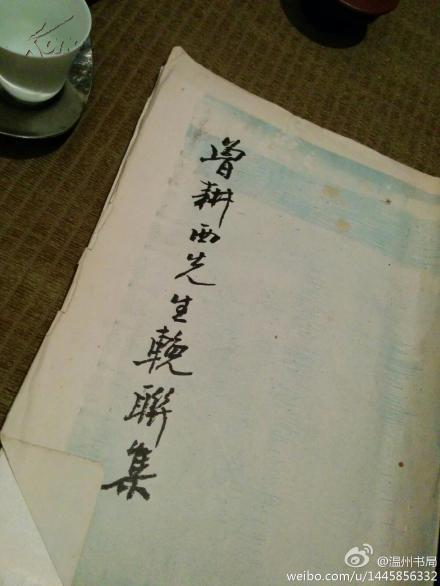 曾耕西先生輓聯集
@温州书局
weibo.com/u/1445856332